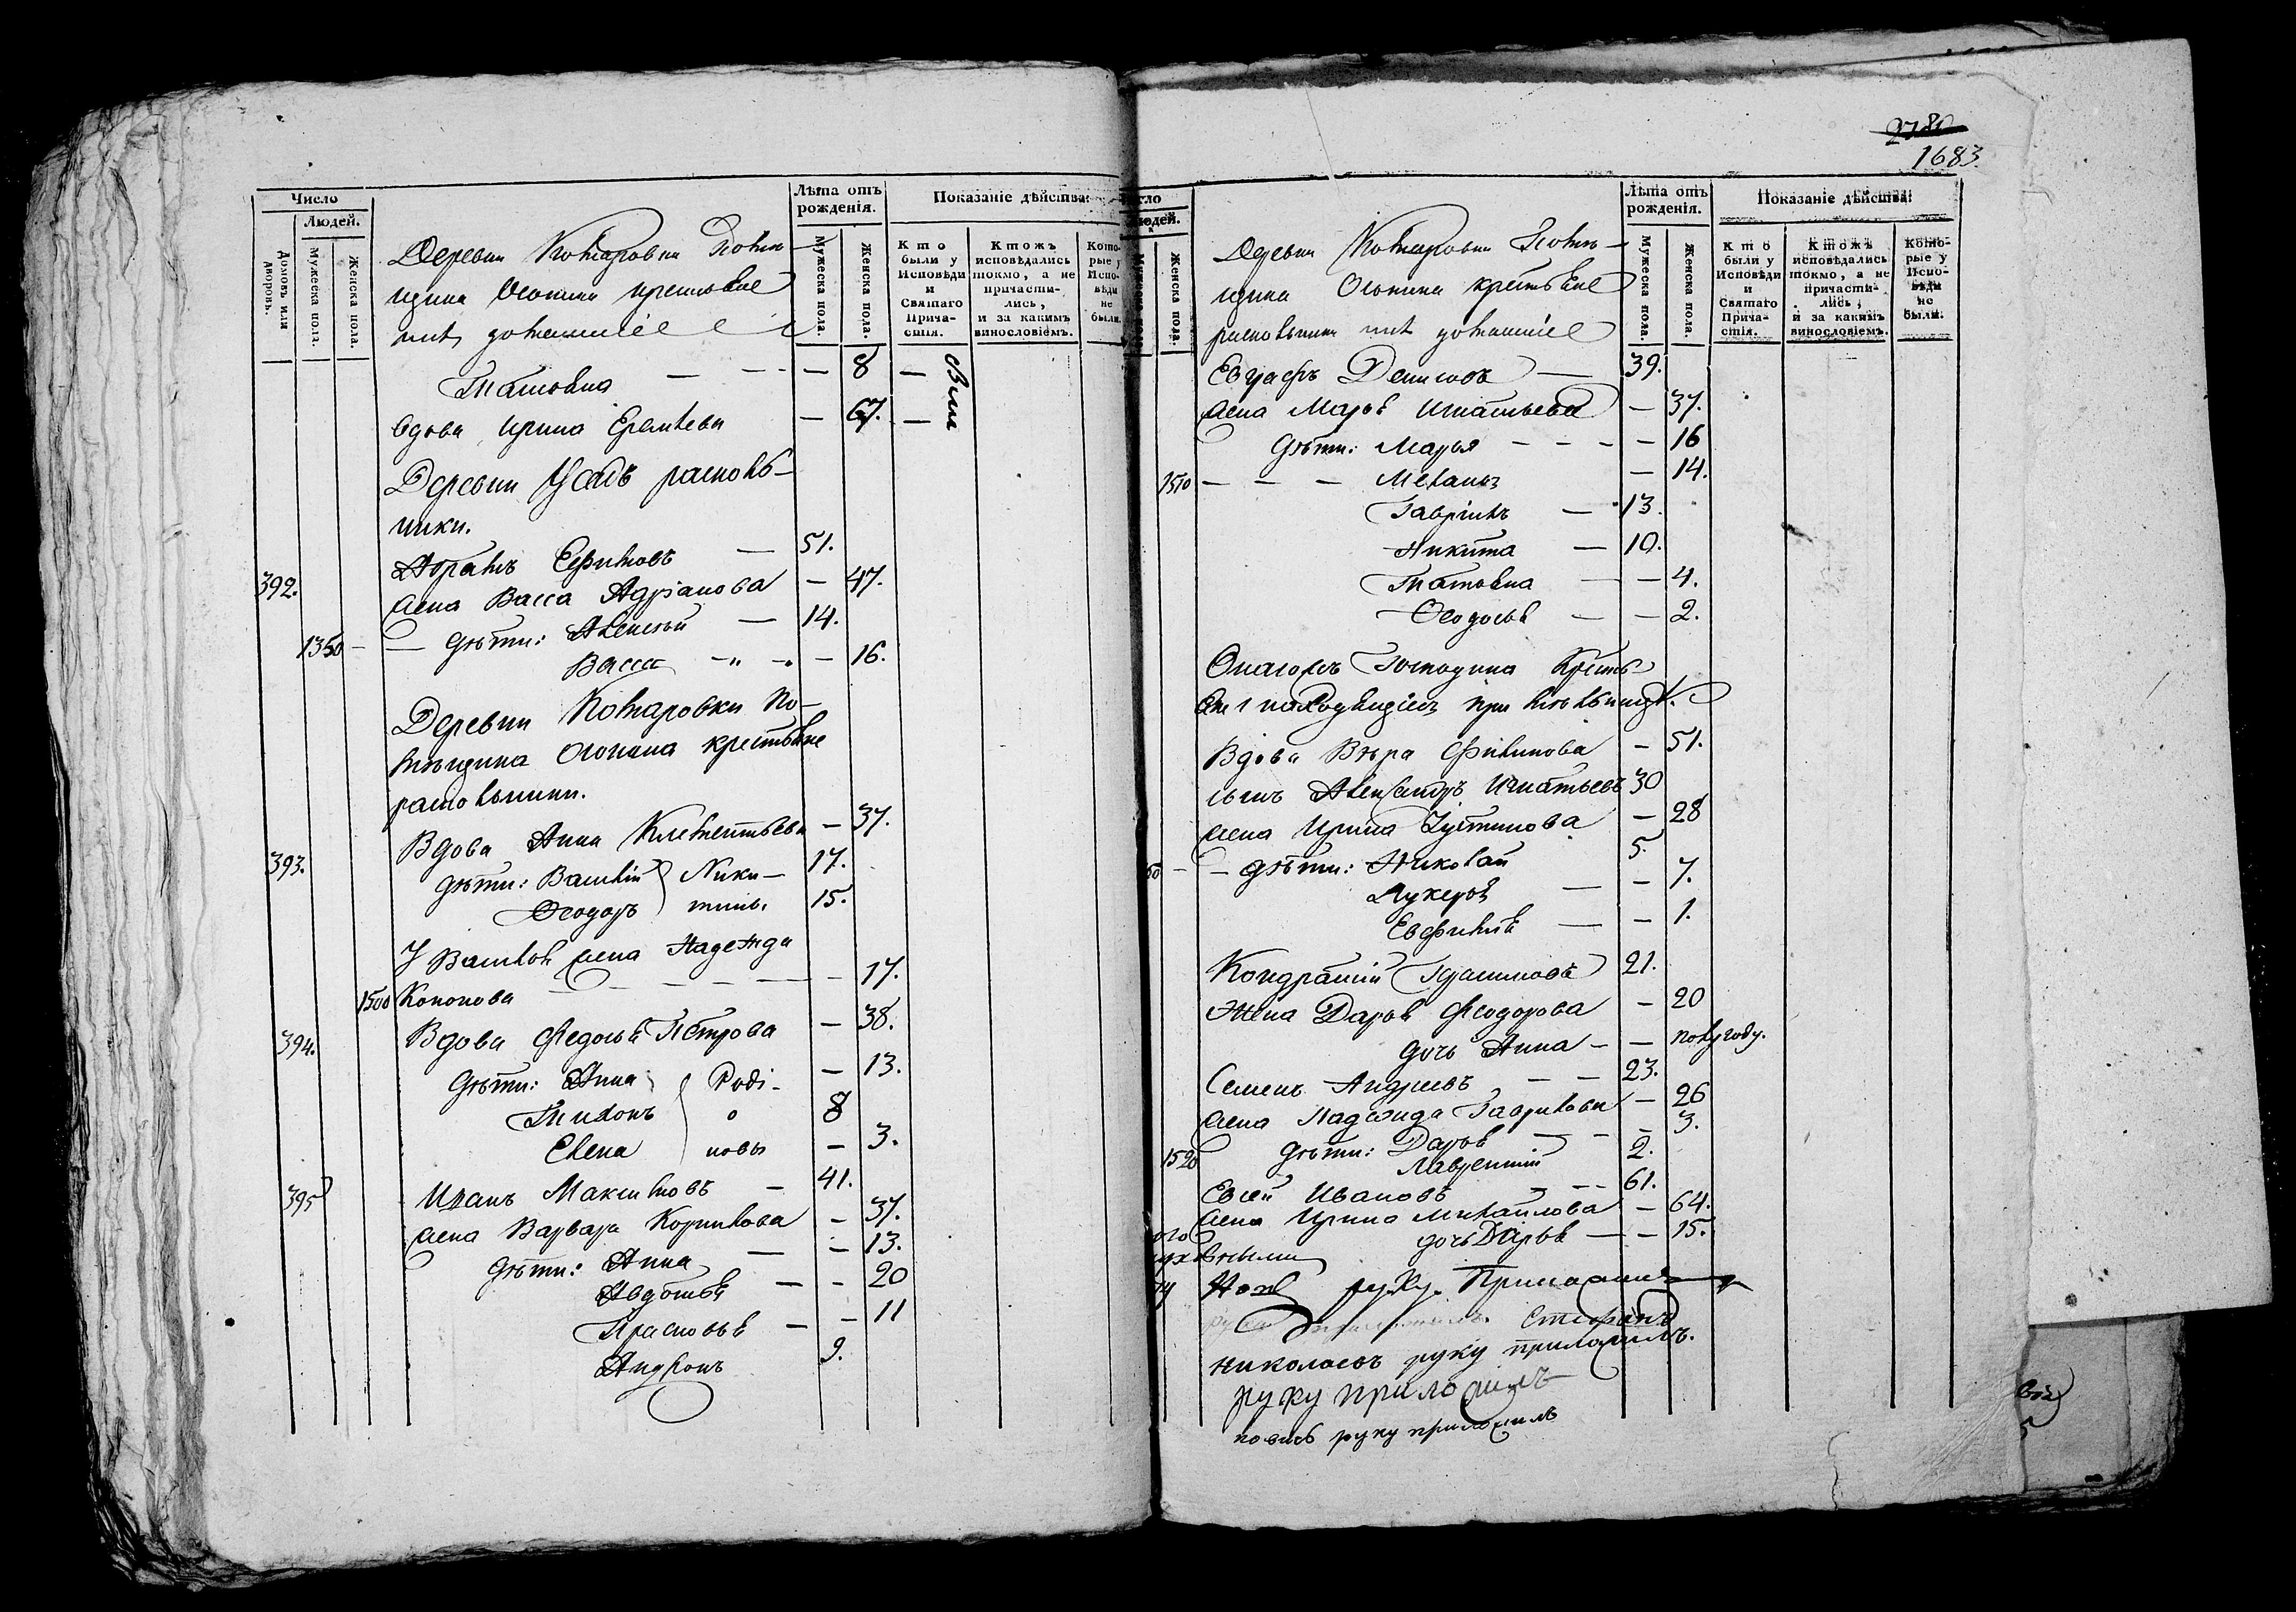 Число
Людей.
Домовъ или дворовъ.
Мужеска пола.
Женска пола.
Деревни Комаровки Помѣ-
щика Осокина крестьяне
нихъ домашніе
Лѣта отъ рожденія.
Мужеска пола.
Женска пола.
Показаніе дѣйства:
Кто были у Исповѣди и Святаго Прича-стія.
Ктожъ исповѣдались токмо, а не причасти-лись, и за какимъ винословіемъ.
Кото-рые у Испо-вѣди не были.
Татьяна — — — 8 — были
вдова Ирина Еремѣева — 67. —
Деревни расколь-
ники.
392. Абрамъ Ефимовъ — 51.
жена Васса Адріанова — 47.
1350 — дѣти: Алексѣй — 14.
Васса — 16.
Деревни Комаровки По-
мѣщика Осокина крестьяне
раскольники.
393. Вдова Анна Клементьева — 37.
дѣти: Василій Ники- 17.
Ѳеодоръ тины. 15.
У Василья жена Надежда
1500 Кононова — 17.
394. Вдова Федосья Петрова — 38.
Дѣти: Анна Роді- — 13.
Тихонъ о 8
Елена новы — 3.
395 Иванъ Максимовъ — 41.
жена Варвара Корнилова — 37.
дѣти: Анна — 13.
Авдотья — — 20
Прасковья — — 11
Андронъ 9.
2780
1683.
Женска пола.
Деревни Комаровки Помѣ-
щика Осокина крестьяне
раскольники нихъ домашніе
Лѣта отъ рожденія.
Мужеска пола.
Женска пола.
Показаніе дѣйства:
Кто были у Исповѣди и Святаго Прича-стія.
Ктожъ исповѣдались токмо, а не причасти-лись, и за какимъ винословіемъ.
Кото-рые у Испо-вѣди не были.
Евграфъ Денисовъ — 39.
жена Марья Игнатьева — 37.
Дѣти: Марья — — — — 16
1510 — — — Меланья — 14.
Гавріилъ — 13.
Никита — 10.
Татьяна — — 4.
Ѳеодосья — — 2.
Онагожъ Господина Крестья
находящіеся при
Вдова Вѣра Филипова — 51.
сынъ Александръ Игнатьевъ 30
жена Ирина Устинова — 28
— дѣти: Николай 5.
Лукерья — — 7.
Евфимія — — 1.
Кондратій Герасимовъ 21.
Жена Дарья Феодорова — 20
дочь Анна — — полугоду.
Семенъ Андреевъ — — 23.
жена Надежда Гаврилова — 26
1520 Дѣти: Дарья — — — 3.
Лаврентій 2.
Евсей Ивановъ — — 61.
жена Ирина Михайлова — 64.
дочь Дарья — — 15.
руку Приложилъ
Стефанъ
Николаевъ руку приложилъ.
руку приложилъ
руку приложилъ